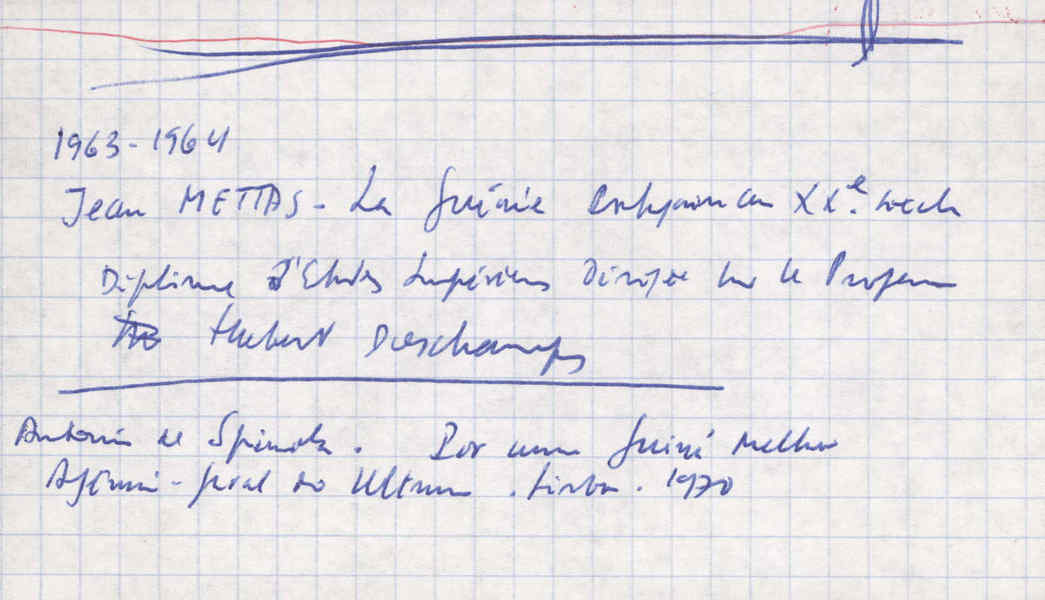 1963-1964
Jean METTAS - La Guinée Portugaise au XXe. siècle
Diplôme d'Etudes Supérieures Dirigée par le Professeur
Hubert Deschamps
Antonio de Spinola. Por uma Guiné Melhor
Agência-Geral do Ultramar. Lisboa. 1970